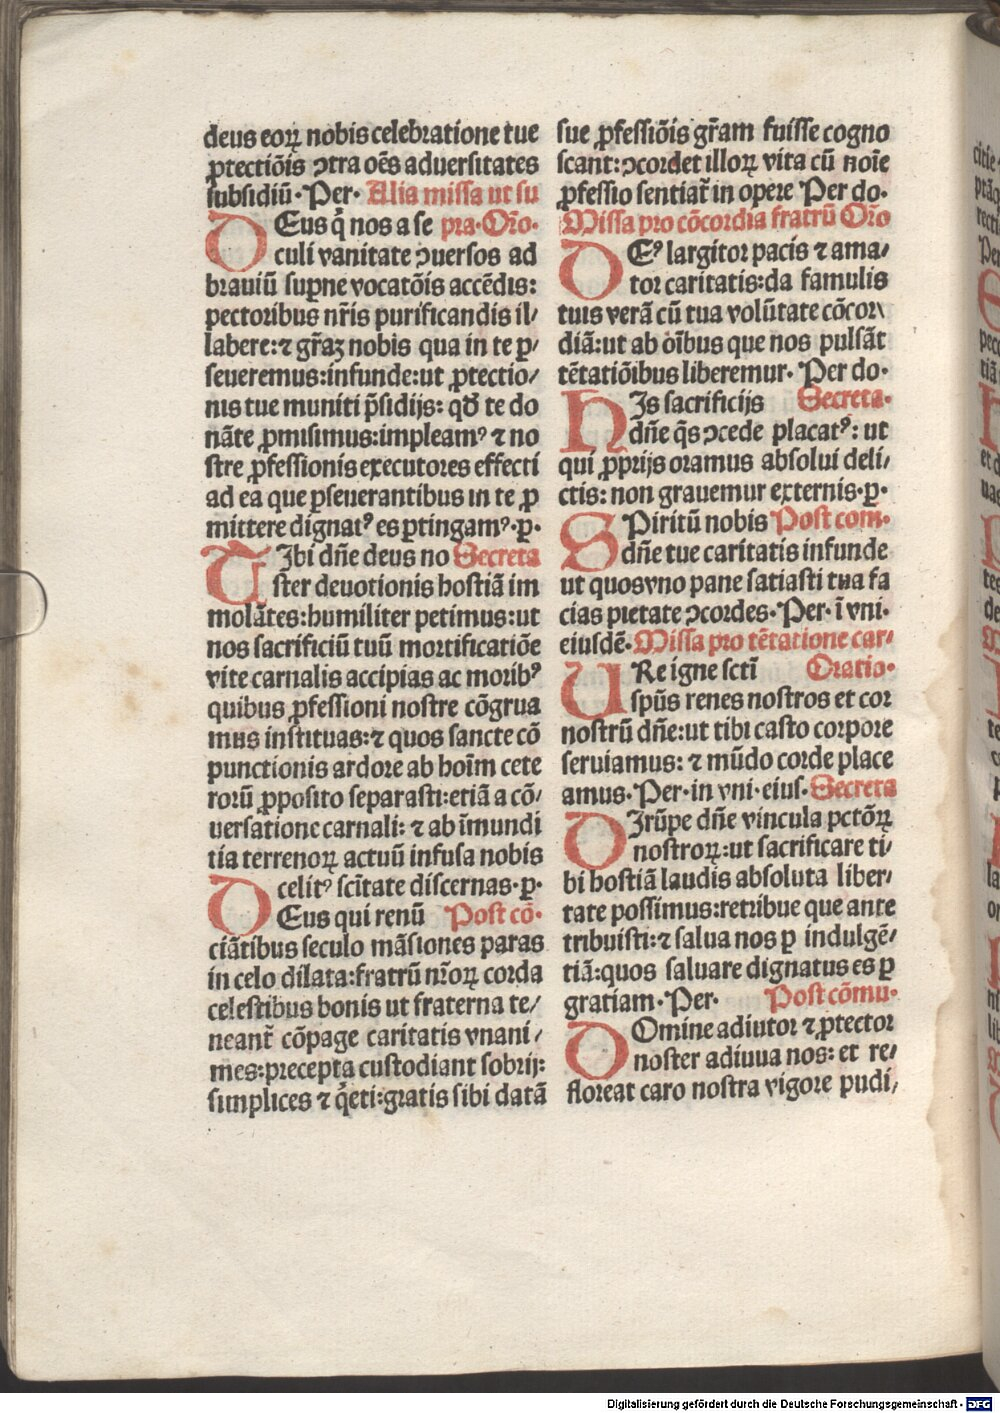 deus eoꝝ nobis celebratione tue
ꝓtectiōis ꝯtra oēs aduersitates
subsidiū. Per. Alia missa ut su
DEus q̄ nos a se pra. Or̄o.
culi vanitate ꝯuersos ad
brauiū suꝑne vocatōis accēdis:
pectoribus nr̄is purificandis il/
labere: ⁊ gr̄aꝫ nobis qua in te ꝑ/
seueremus: infunde: ut ꝓtectio/
nis tue muniti p̄sidijs: qđ te do
nāte ꝓmisimus: impleamꝰ ⁊ no
stre ꝓfessionis executores effecti
ad ea que ꝑseuerantibus in te ꝓ
mittere dignatꝰ es ꝑtingamꝰ. ꝑ.
TIbi dn̄e deus no Secreta
ster deuotionis hostiā im
molātes: humiliter petimus: ut
nos sacrificiū tuū mortificatiōe
vite carnalis accipias ac moribꝰ
quibus ꝓfessioni nostre cōgrua
mus instituas: ⁊ quos sancte cō
punctionis ardore ab hoīm cete
rorū ꝓposito separasti: etiā a cō/
uersatione carnali: ⁊ ab īmundi
tia terrenoꝝ actuū infusa nobis
celitꝰ scītate discernas. ꝑ.
DEus qui renū Post cō.
ciātibus seculo māsiones paras
in celo dilata: fratrū nr̄oꝝ corda
celestibus bonis ut fraterna te/
neant᷑ cōpage caritatis vnani/
mes: precepta custodiant sobrij:
simplices ⁊ q̄eti: gratis sibi datā
sue ꝓfessiōis gr̄am fuisse cogno
scant: ꝯcordet illoꝝ vita cū noīe
ꝓfessio sentiat᷑ in opere Per do.
Missa pro cōcordia fratrū Or̄o
DEꝰ largitor pacis ⁊ ama/
tor caritatis: da famulis
tuis verā cū tua volūtate cōcor
diā: ut ab oībus que nos pulsāt
tētatiōibus liberemur. Per do.
HIs sacrificijs Secreta.
dn̄e q̄s ꝯcede placatꝰ: ut
qui ꝓprijs oramus absolui deli/
ctis: non grauemur externis. ꝑ.
SPiritū nobis Post com.
dn̄e tue caritatis infunde
ut quos vno pane satiasti tua fa
cias pietate ꝯcordes. Per. ī vni.
eiusdē. Missa pro tētatione car.
URe igne scti Oratio.
spūs renes nostros et cor
nostrū dn̄e: ut tibi casto corpore
seruiamus: ⁊ mūdo corde place
amus. Per. in vni. eius. Secreta
DIrūpe dn̄e vincula pctōꝝ
nostroꝝ: ut sacrificare ti/
bi hostiā laudis absoluta liber/
tate possimus: retribue que ante
tribuisti: ⁊ salua nos ꝑ indulgē/
tiā: quos saluare dignatus es ꝑ
gratiam. Per. Post cōmu.
DOmine adiutor ⁊ ꝓtector
noster adiuua nos: et re/
floreat caro nostra vigore pudi/
Digitalisierung gefördert durch die Deutsche Forschungsgemeinschaft - DFG